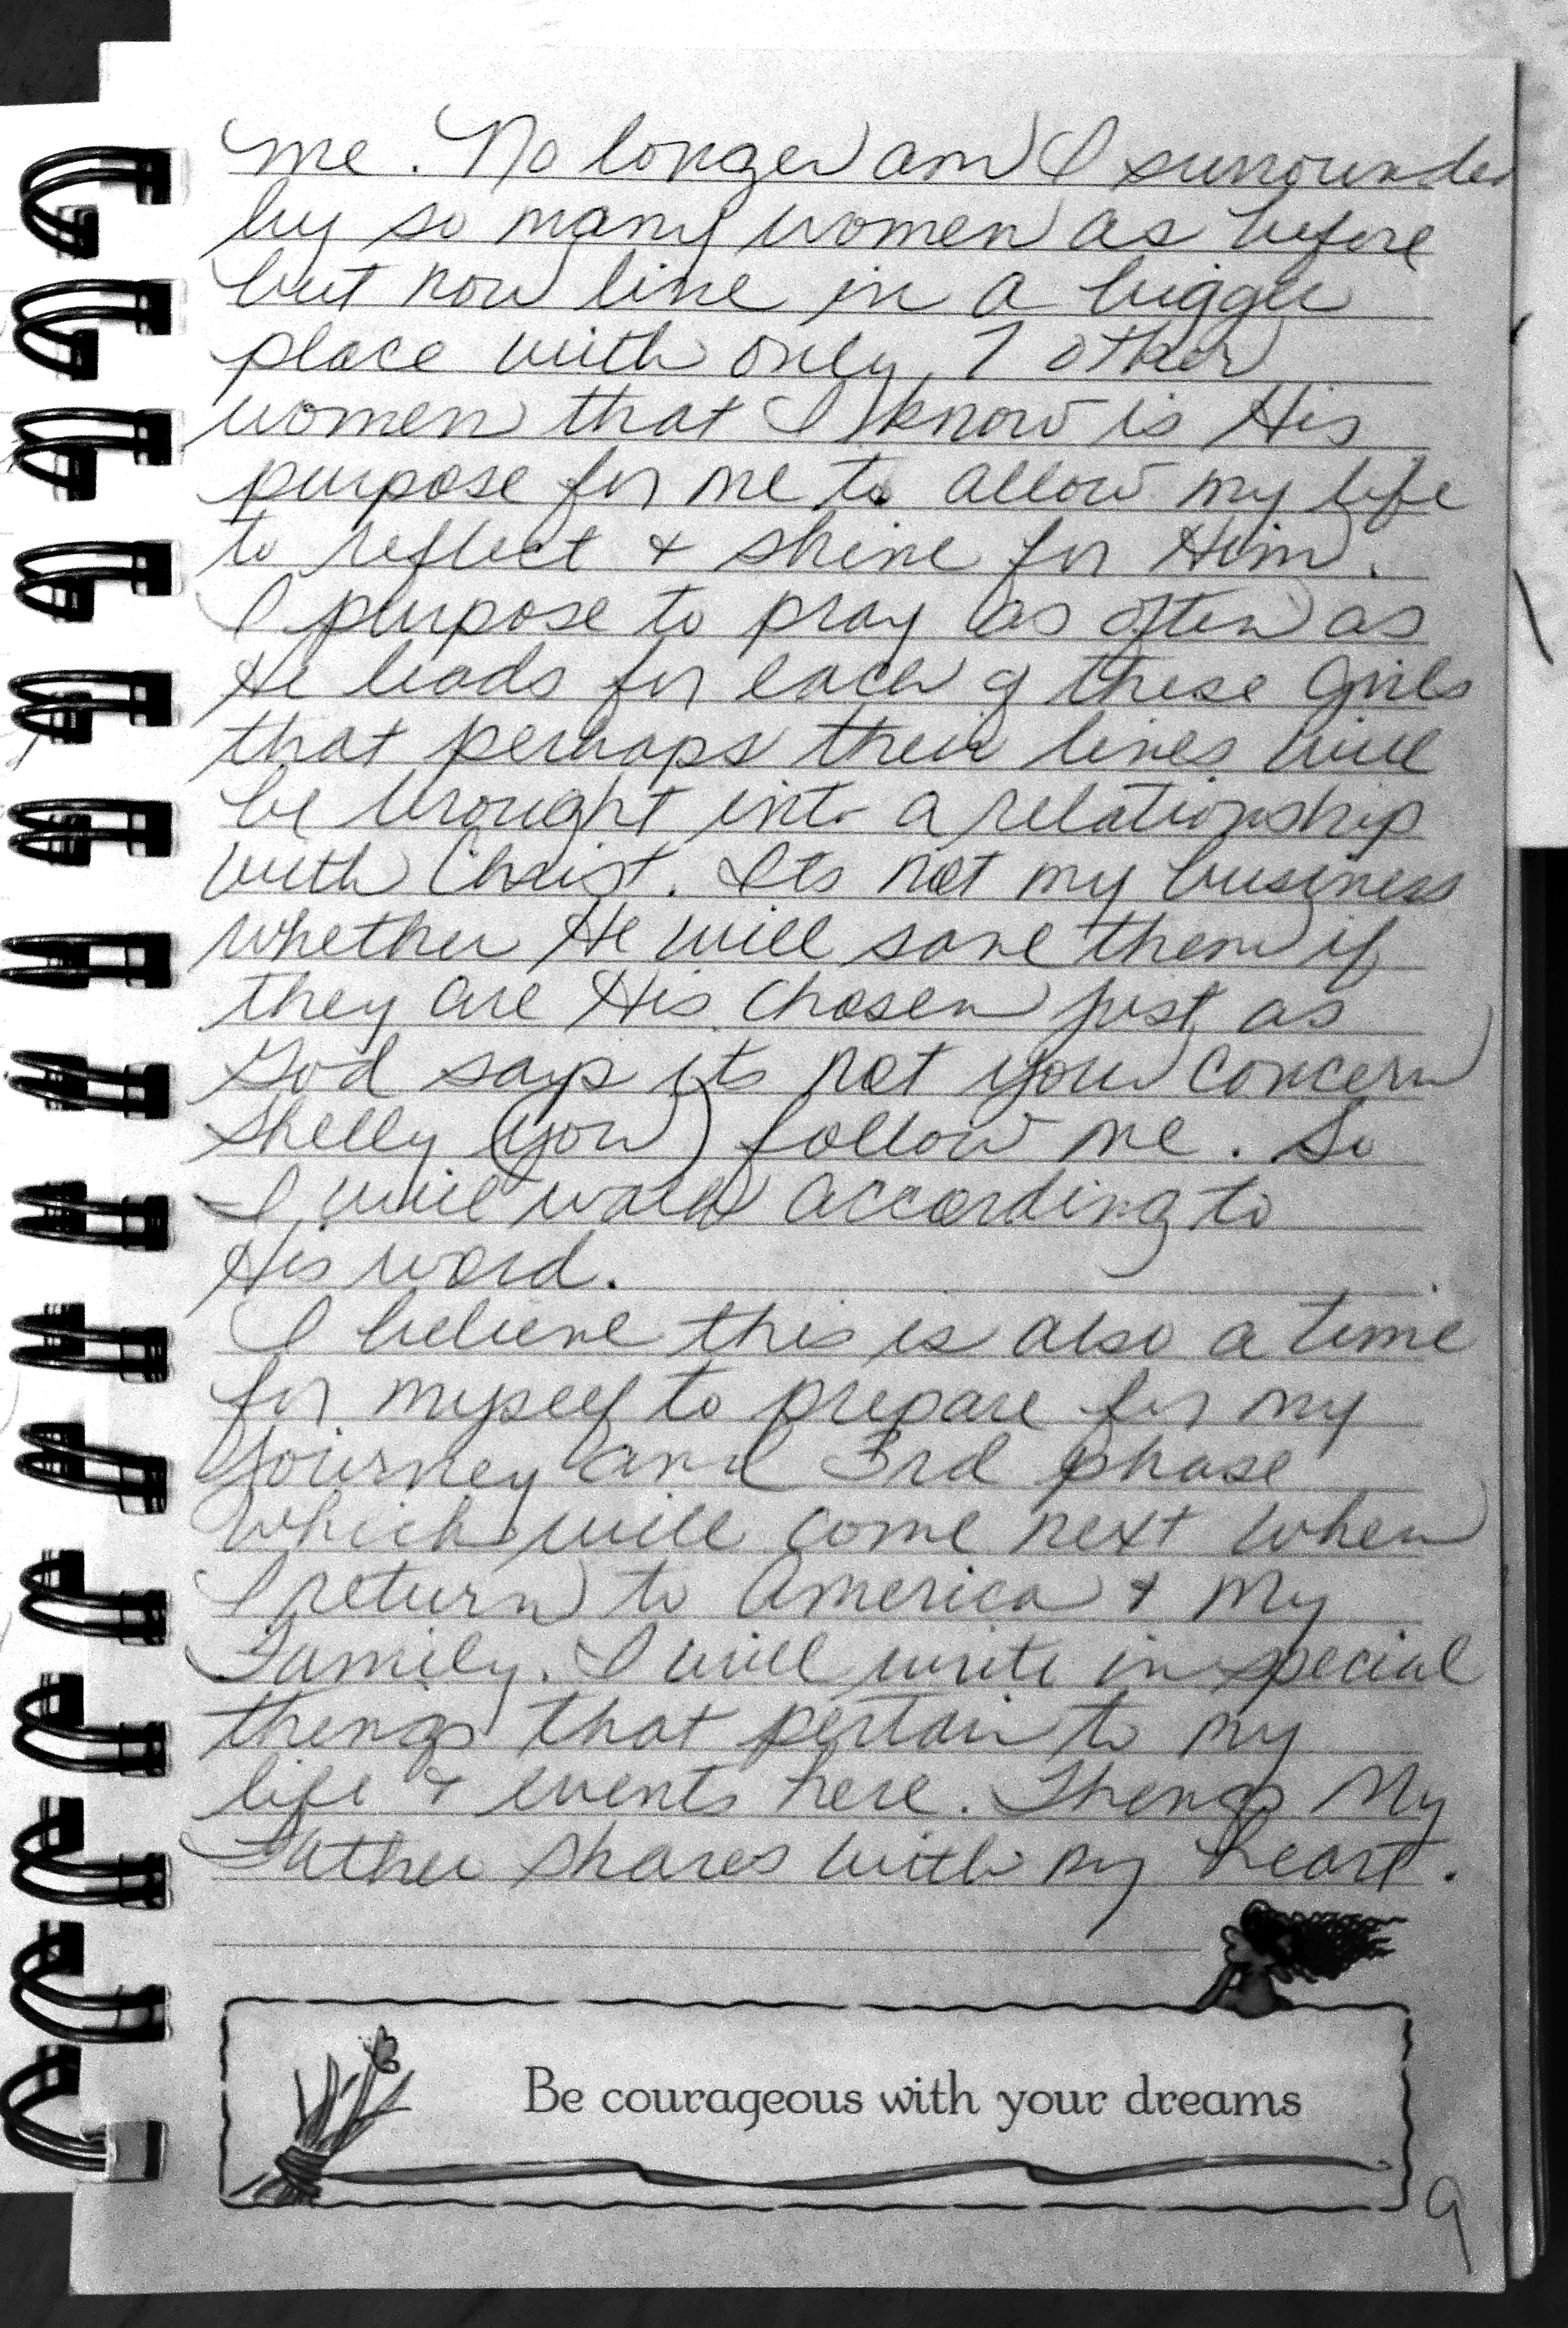 me. No longer am I surrounded
by so many women as before
but now live in a bigger
place with only 7 other
women that I know is His
purpose for me to allow my life
to reflect & shine for Him.
I purpose to pray as often as
He leads for each of these Girls
that perhaps their lives will
be brought into a relationship
with Christ. Its not my business
whether He will save them if
they are His chosen just as
God says its not your concern
Shelly (you) follow me. So
I will walk according to
His word.
I believe this is also a time
for myself to prepare for my
Journey and 3rd phase
which will come next when
I return to America & My
Family. I will write in special
things that pertain to my
life & events here. Things My
Father shares with my heart.
Be courageous with your dreams
9